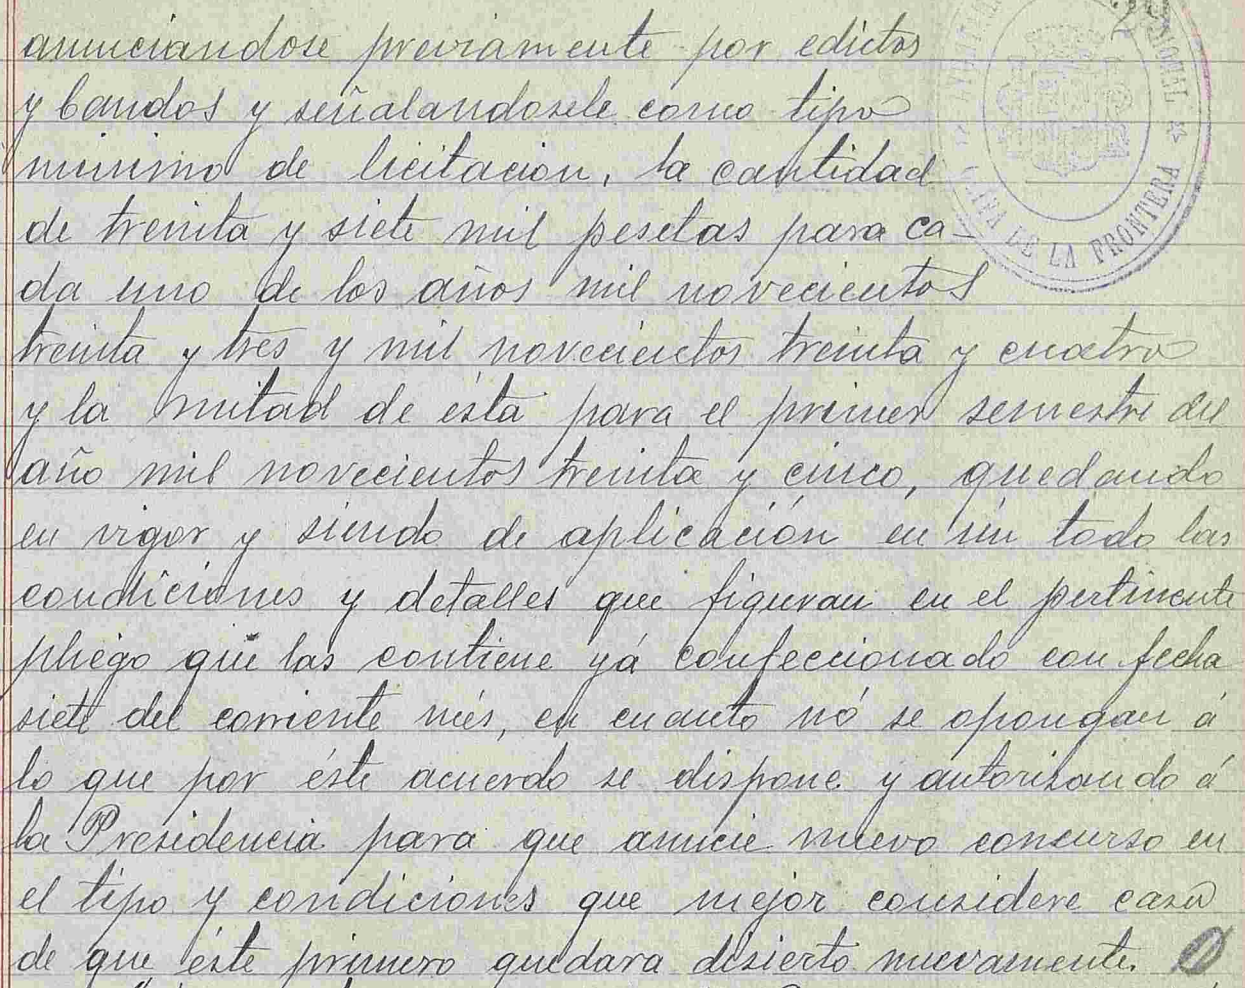 anunciandose previamente por edictos
y bandos y señalandosele como tipo
minimo de licitación, la cantidad
de treinta y siete mil pesetas para ca
da uno de los años mil novecientos
treinta y tres y mil novecientos treinta y cuatro
y la mitad de ésta para el primer semestre del
año mil novecientos treinta y cinco, quedando
en vigor y siendo de aplicación en un todo las
condiciones y detalles que figuran en el pertinente
pliego que las contiene yá confeccionado con fecha
siete del corriente més, en cuanto nó se opongan á
lo que por éste acuerdo se dispone y autorizando á
la Presidencia para que anucie nuevo concurso en
el tipo y condiciones que mejor considere caso
de que éste primero quedara desierto nuevamente.
DE LA FRONTERA